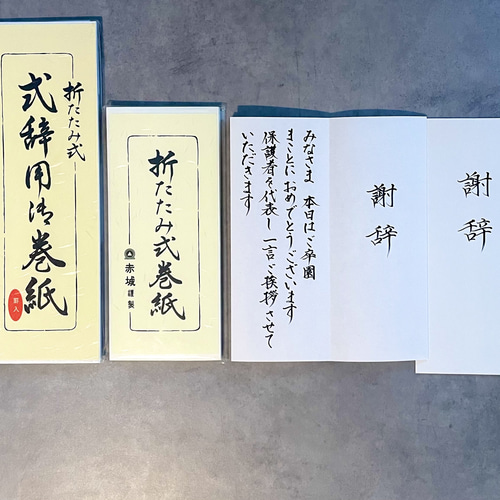 折たたみ式
式辞用御巻紙
折たたみ式巻紙
赤城謹製
みなさま 本日はご卒園
まことに おめでとうございます
保護者を代表し 一言ご挨拶させて
いただきます
謝辞
謝辞